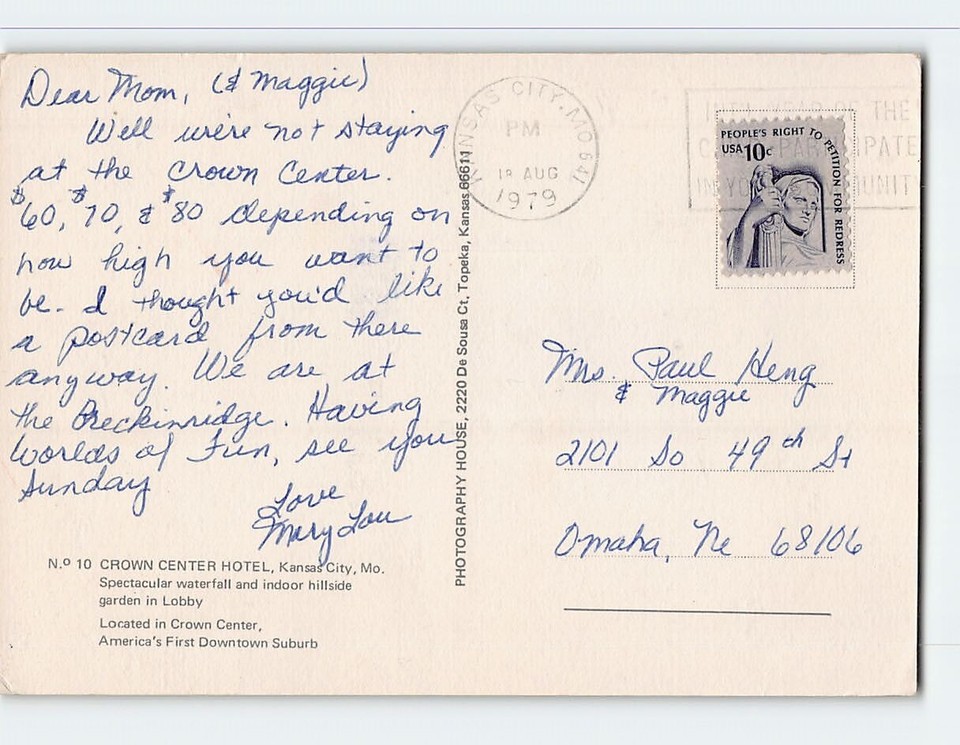 Dear Mom, (& Maggie)
Well we're not staying
at the Crown Center.
$60, $70, & $80 depending on
how high you want to
be. I thought you'd like
a postcard from there
anyway. We are at
the Breckinridge. Having
Worlds of Fun, see you
Sunday
Love
Mary Lou
N.º 10 CROWN CENTER HOTEL, Kansas City, Mo.
Spectacular waterfall and indoor hillside
garden in Lobby
Located in Crown Center,
America's First Downtown Suburb
PHOTOGRAPHY HOUSE, 2220 De Sousa Ct, Topeka, Kansas 66611
KANSAS CITY, MO 641
PM
18 AUG
1979
INTL YEAR OF THE
PARTICIPATE
IN YOUR COMMUNITY
PEOPLE'S RIGHT TO PETITION FOR REDRESS
USA 10c
Mrs. Paul Heng
& Maggie
2101 So 49th St
Omaha, Ne 68106